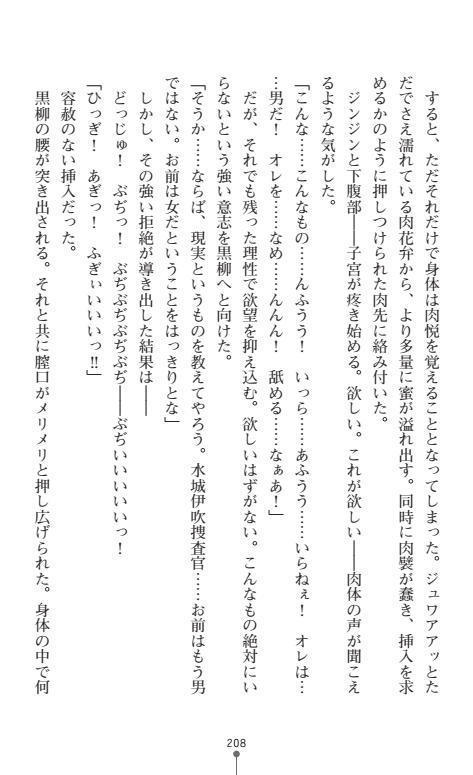 すると、ただそれだけで身体は肉悦を覚えることとなってしまった。ジュワアアッとた
だでさえ濡れている肉花弁から、より多量に蜜が溢れ出す。同時に肉襞が蠢き、挿入を求
めるかのように押しつけられた肉先に絡み付いた。
　ジンジンと下腹部――子宮が疼き始める。欲しい。これが欲しい――肉体の声が聞こえ
るような気がした。
「こんな……こんなもの……んふうう！　いっら……あふうう……いらねぇ！　オレは…
…男だ！　オレを……なめ……んんん！　舐める……なぁあ！」
　だが、それでも残った理性で欲望を抑え込む。欲しいはずがない。こんなもの絶対にい
らないという強い意志を黒柳へと向けた。
「そうか……ならば、現実というものを教えてやろう。水城伊吹捜査官……お前はもう男
ではない。お前は女だということをはっきりとな」
　しかし、その強い拒絶が導き出した結果は――
　どっじゅ！　ぶぢっ！　ぶぢぶぢぶぢぶぢ――ぶぢいいいいいっ！
「ひっぎ！　あぎっ！　ふぎぃいいいいっ!!」
　容赦のない挿入だった。
　黒柳の腰が突き出される。それと共に膣口がメリメリと押し広げられた。身体の中で何
208